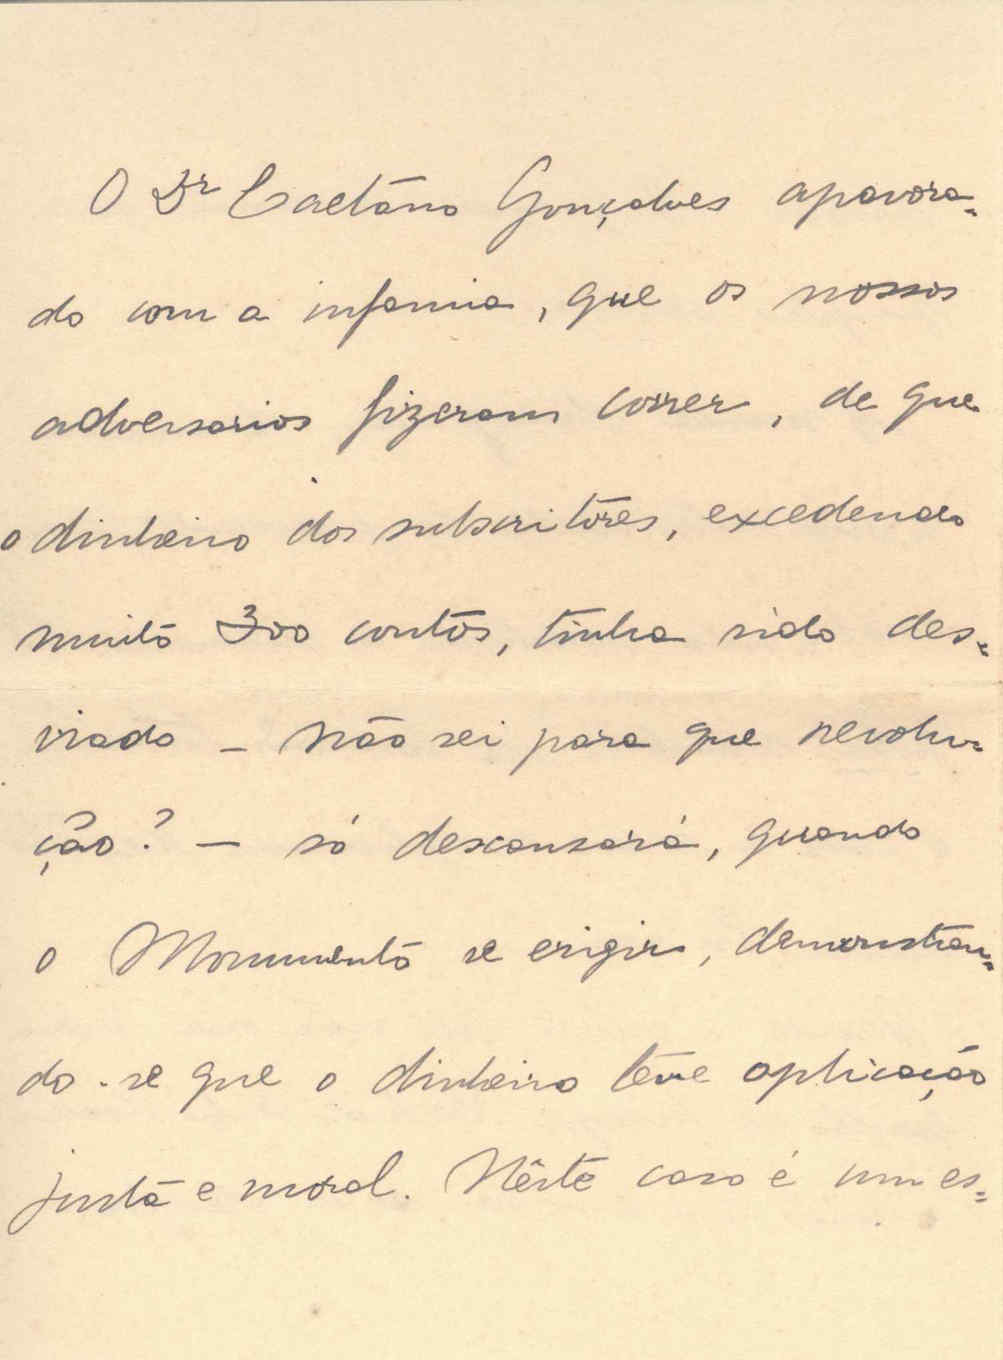 O Dr Caetano Gonçalves apavora-
do com a infamia, que os nossos
adversarios fizeram correr, de que
o dinheiro dos subscritores, excedendo
muito 300 contos, tinha sido des-
viado - não sei para que revolu-
ção? - só descansará, quando
o Monumento se erigir, demonstran-
do-se que o dinheiro teve aplicação
justa e moral. Nêste caso é um es-